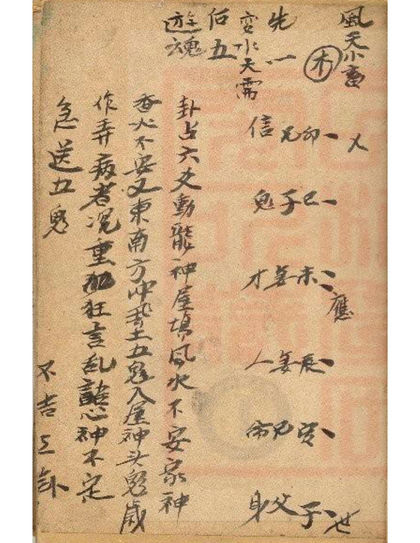 風天小畜
木
先一
变水天需
后五
遊魂
信 兄 卯 乂
鬼 子 巳
才 妻 未 應
人 妻 辰
命 兄 寅
身 父 子 世
卦占六爻動龍神屋墳風水不安家神
香火不安又東南方冲 土五鬼入屋神头鬼歲
作弄病者沉重 狂言乱語心神不定
急送五鬼
不吉之卦